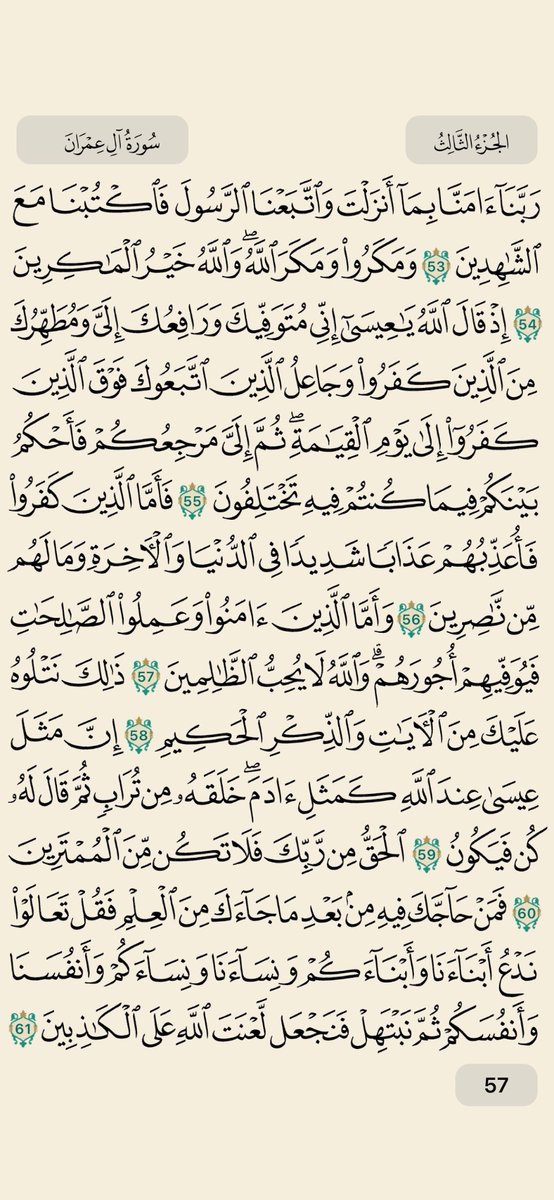 الجُزْءُ الثَّالِثُ
سُورَةُ آلِ عِمْرَانَ
رَبَّنَآ ءَامَنَّا بِمَآ أَنزَلْتَ وَٱتَّبَعْنَا ٱلرَّسُولَ فَٱكْتُبْنَا مَعَ
ٱلشَّٰهِدِينَ 53 وَمَكَرُوا۟ وَمَكَرَ ٱللَّهُ ۖ وَٱللَّهُ خَيْرُ ٱلْمَٰكِرِينَ
54 إِذْ قَالَ ٱللَّهُ يَٰعِيسَىٰٓ إِنِّى مُتَوَفِّيكَ وَرَافِعُكَ إِلَىَّ وَمُطَهِّرُكَ
مِنَ ٱلَّذِينَ كَفَرُوا۟ وَجَاعِلُ ٱلَّذِينَ ٱتَّبَعُوكَ فَوْقَ ٱلَّذِينَ
كَفَرُوٓا۟ إِلَىٰ يَوْمِ ٱلْقِيَٰمَةِ ۖ ثُمَّ إِلَىَّ مَرْجِعُكُمْ فَأَحْكُمُ
بَيْنَكُمْ فِيمَا كُنتُمْ فِيهِ تَخْتَلِفُونَ 55 فَأَمَّا ٱلَّذِينَ كَفَرُوا۟
فَأُعَذِّبُهُمْ عَذَابًا شَدِيدًا فِى ٱلدُّنْيَا وَٱلْءَاخِرَةِ وَمَا لَهُم
مِّن نَّٰصِرِينَ 56 وَأَمَّا ٱلَّذِينَ ءَامَنُوا۟ وَعَمِلُوا۟ ٱلصَّٰلِحَٰتِ
فَيُوَفِّيهِمْ أُجُورَهُمْ ۗ وَٱللَّهُ لَا يُحِبُّ ٱلظَّٰلِمِينَ 57 ذَٰلِكَ نَتْلُوهُ
عَلَيْكَ مِنَ ٱلْءَايَٰتِ وَٱلذِّكْرِ ٱلْحَكِيمِ 58 إِنَّ مَثَلَ
عِيسَىٰ عِندَ ٱللَّهِ كَمَثَلِ ءَادَمَ ۖ خَلَقَهُۥ مِن تُرَابٍ ثُمَّ قَالَ لَهُۥ
كُن فَيَكُونُ 59 ٱلْحَقُّ مِن رَّبِّكَ فَلَا تَكُن مِّنَ ٱلْمُمْتَرِينَ
60 فَمَنْ حَآجَّكَ فِيهِ مِنۢ بَعْدِ مَا جَآءَكَ مِنَ ٱلْعِلْمِ فَقُلْ تَعَالَوْا۟
نَدْعُ أَبْنَآءَنَا وَأَبْنَآءَكُمْ وَنِسَآءَنَا وَنِسَآءَكُمْ وَأَنفُسَنَا
وَأَنفُسَكُمْ ثُمَّ نَبْتَهِلْ فَنَجْعَل لَّعْنَتَ ٱللَّهِ عَلَى ٱلْكَٰذِبِينَ 61
57